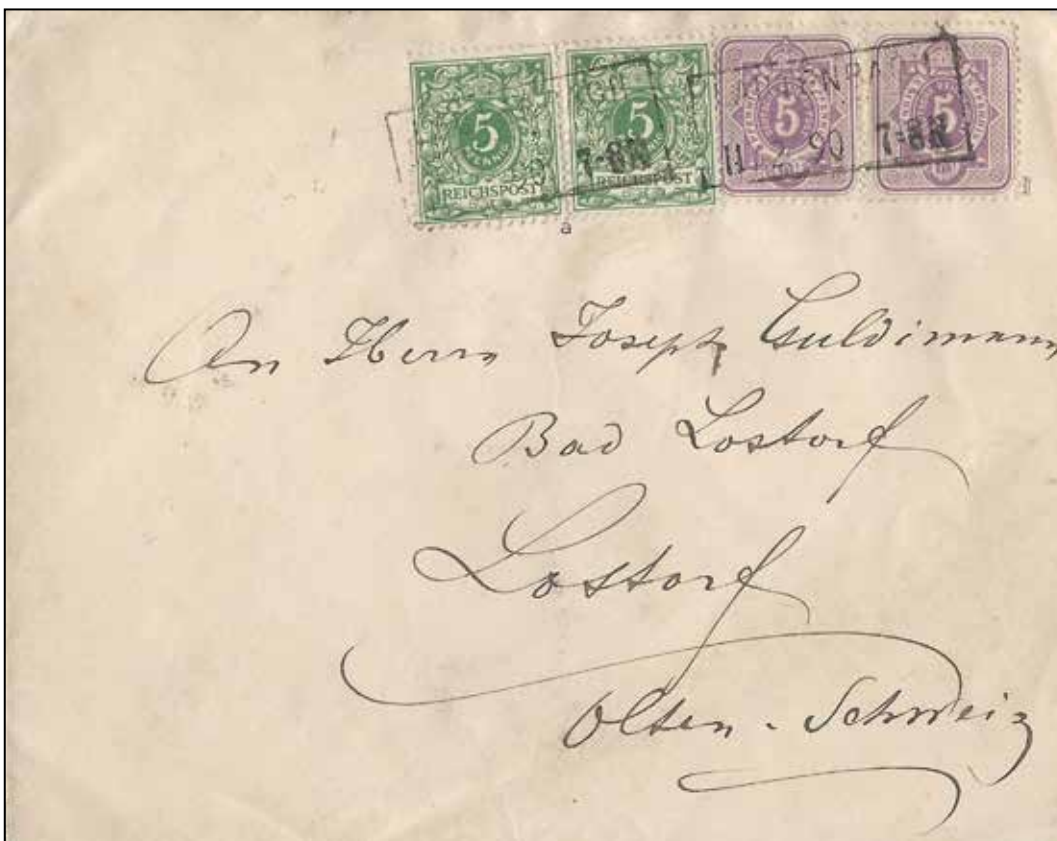 5 5 5 5
PFENNIG
REICHSPOST REICHSPOST
7-8N 11 90 7-8N
a
An Herrn Joseph Guldimann
Bad Lostorf
Lostorf
Olten - Schweiz